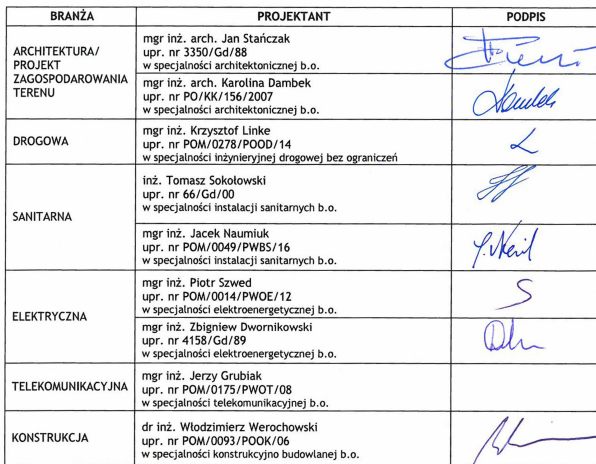 BRANŻA PROJEKTANT PODPIS
ARCHITEKTURA/
PROJEKT
ZAGOSPODAROWANIA
TERENU
mgr inż. arch. Jan Stańczak
upr. nr 3350/Gd/88
w specjalności architektonicznej b.o.
mgr inż. arch. Karolina Dambek
upr. nr PO/KK/156/2007
w specjalności architektonicznej b.o.
DROGOWA
mgr inż. Krzysztof Linke
upr. nr POM/0278/POOD/14
w specjalności inżynieryjnej drogowej bez ograniczeń
SANITARNA
inż. Tomasz Sokołowski
upr. nr 66/Gd/00
w specjalności instalacji sanitarnych b.o.
mgr inż. Jacek Naumiuk
upr. nr POM/0049/PWBS/16
w specjalności instalacji sanitarnych b.o.
ELEKTRYCZNA
mgr inż. Piotr Szwed
upr. nr POM/0014/PWOE/12
w specjalności elektroenergetycznej b.o.
mgr inż. Zbigniew Dwornikowski
upr. nr 4158/Gd/89
w specjalności elektroenergetycznej b.o.
TELEKOMUNIKACYJNA
mgr inż. Jerzy Grubiak
upr. nr POM/0175/PWOT/08
w specjalności telekomunikacyjnej b.o.
KONSTRUKCJA
dr inż. Włodzimierz Werochowski
upr. nr POM/0093/POOK/06
w specjalności konstrukcyjno budowlanej b.o.